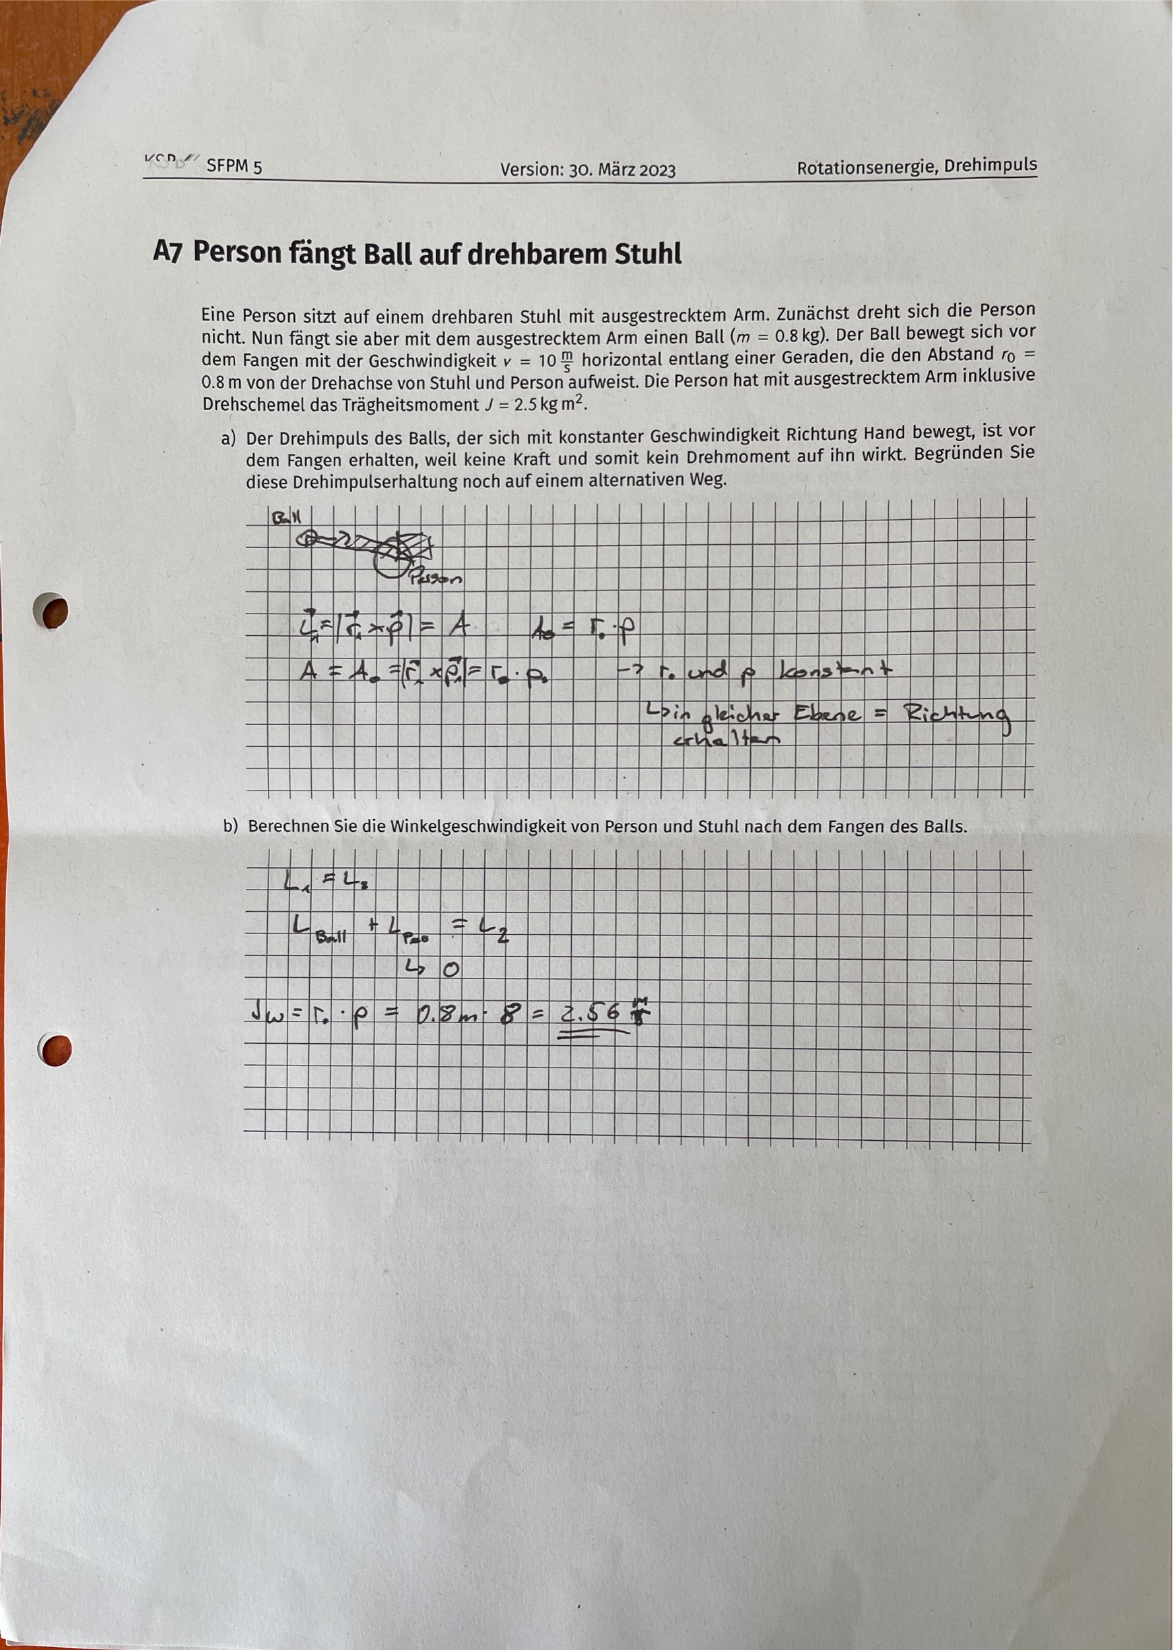 SFPM 5 Version: 30. März 2023 Rotationsenergie, Drehimpuls
A7 Person fängt Ball auf drehbarem Stuhl
Eine Person sitzt auf einem drehbaren Stuhl mit ausgestrecktem Arm. Zunächst dreht sich die Person
nicht. Nun fängt sie aber mit dem ausgestrecktem Arm einen Ball (m = 0.8 kg). Der Ball bewegt sich vor
dem Fangen mit der Geschwindigkeit v = 10 m/s horizontal entlang einer Geraden, die den Abstand r₀ =
0.8 m von der Drehachse von Stuhl und Person aufweist. Die Person hat mit ausgestrecktem Arm inklusive
Drehschemel das Trägheitsmoment J = 2.5 kg m².
a) Der Drehimpuls des Balls, der sich mit konstanter Geschwindigkeit Richtung Hand bewegt, ist vor
dem Fangen erhalten, weil keine Kraft und somit kein Drehmoment auf ihn wirkt. Begründen Sie
diese Drehimpulserhaltung noch auf einem alternativen Weg.
Ball
Person
L⃗₁=|r⃗₁×p⃗|= A A₀ = r₀·p
A = A₀ =|r⃗₁ ×p⃗₁|= r₀·p₀ -> r₀ und p konstant
↳in gleicher Ebene = Richtung
erhalten
b) Berechnen Sie die Winkelgeschwindigkeit von Person und Stuhl nach dem Fangen des Balls.
L₁ = L₂
L Ball + L = L₂
↳ 0
Jω = r₀ · p = 0.8m · 8 = 2.56